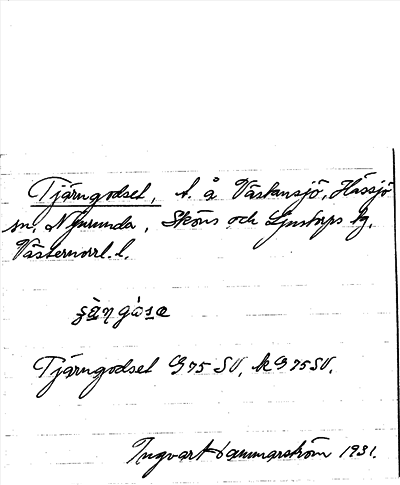 Tjärngodset, t. å Västansjö, Hässjö
sn, Njurunda, Sköns och Ljustorps tg.
Västernorrl. l.
Tjärngodset G75 SV, kG75SV.
Ingvar Hammarström 1931.